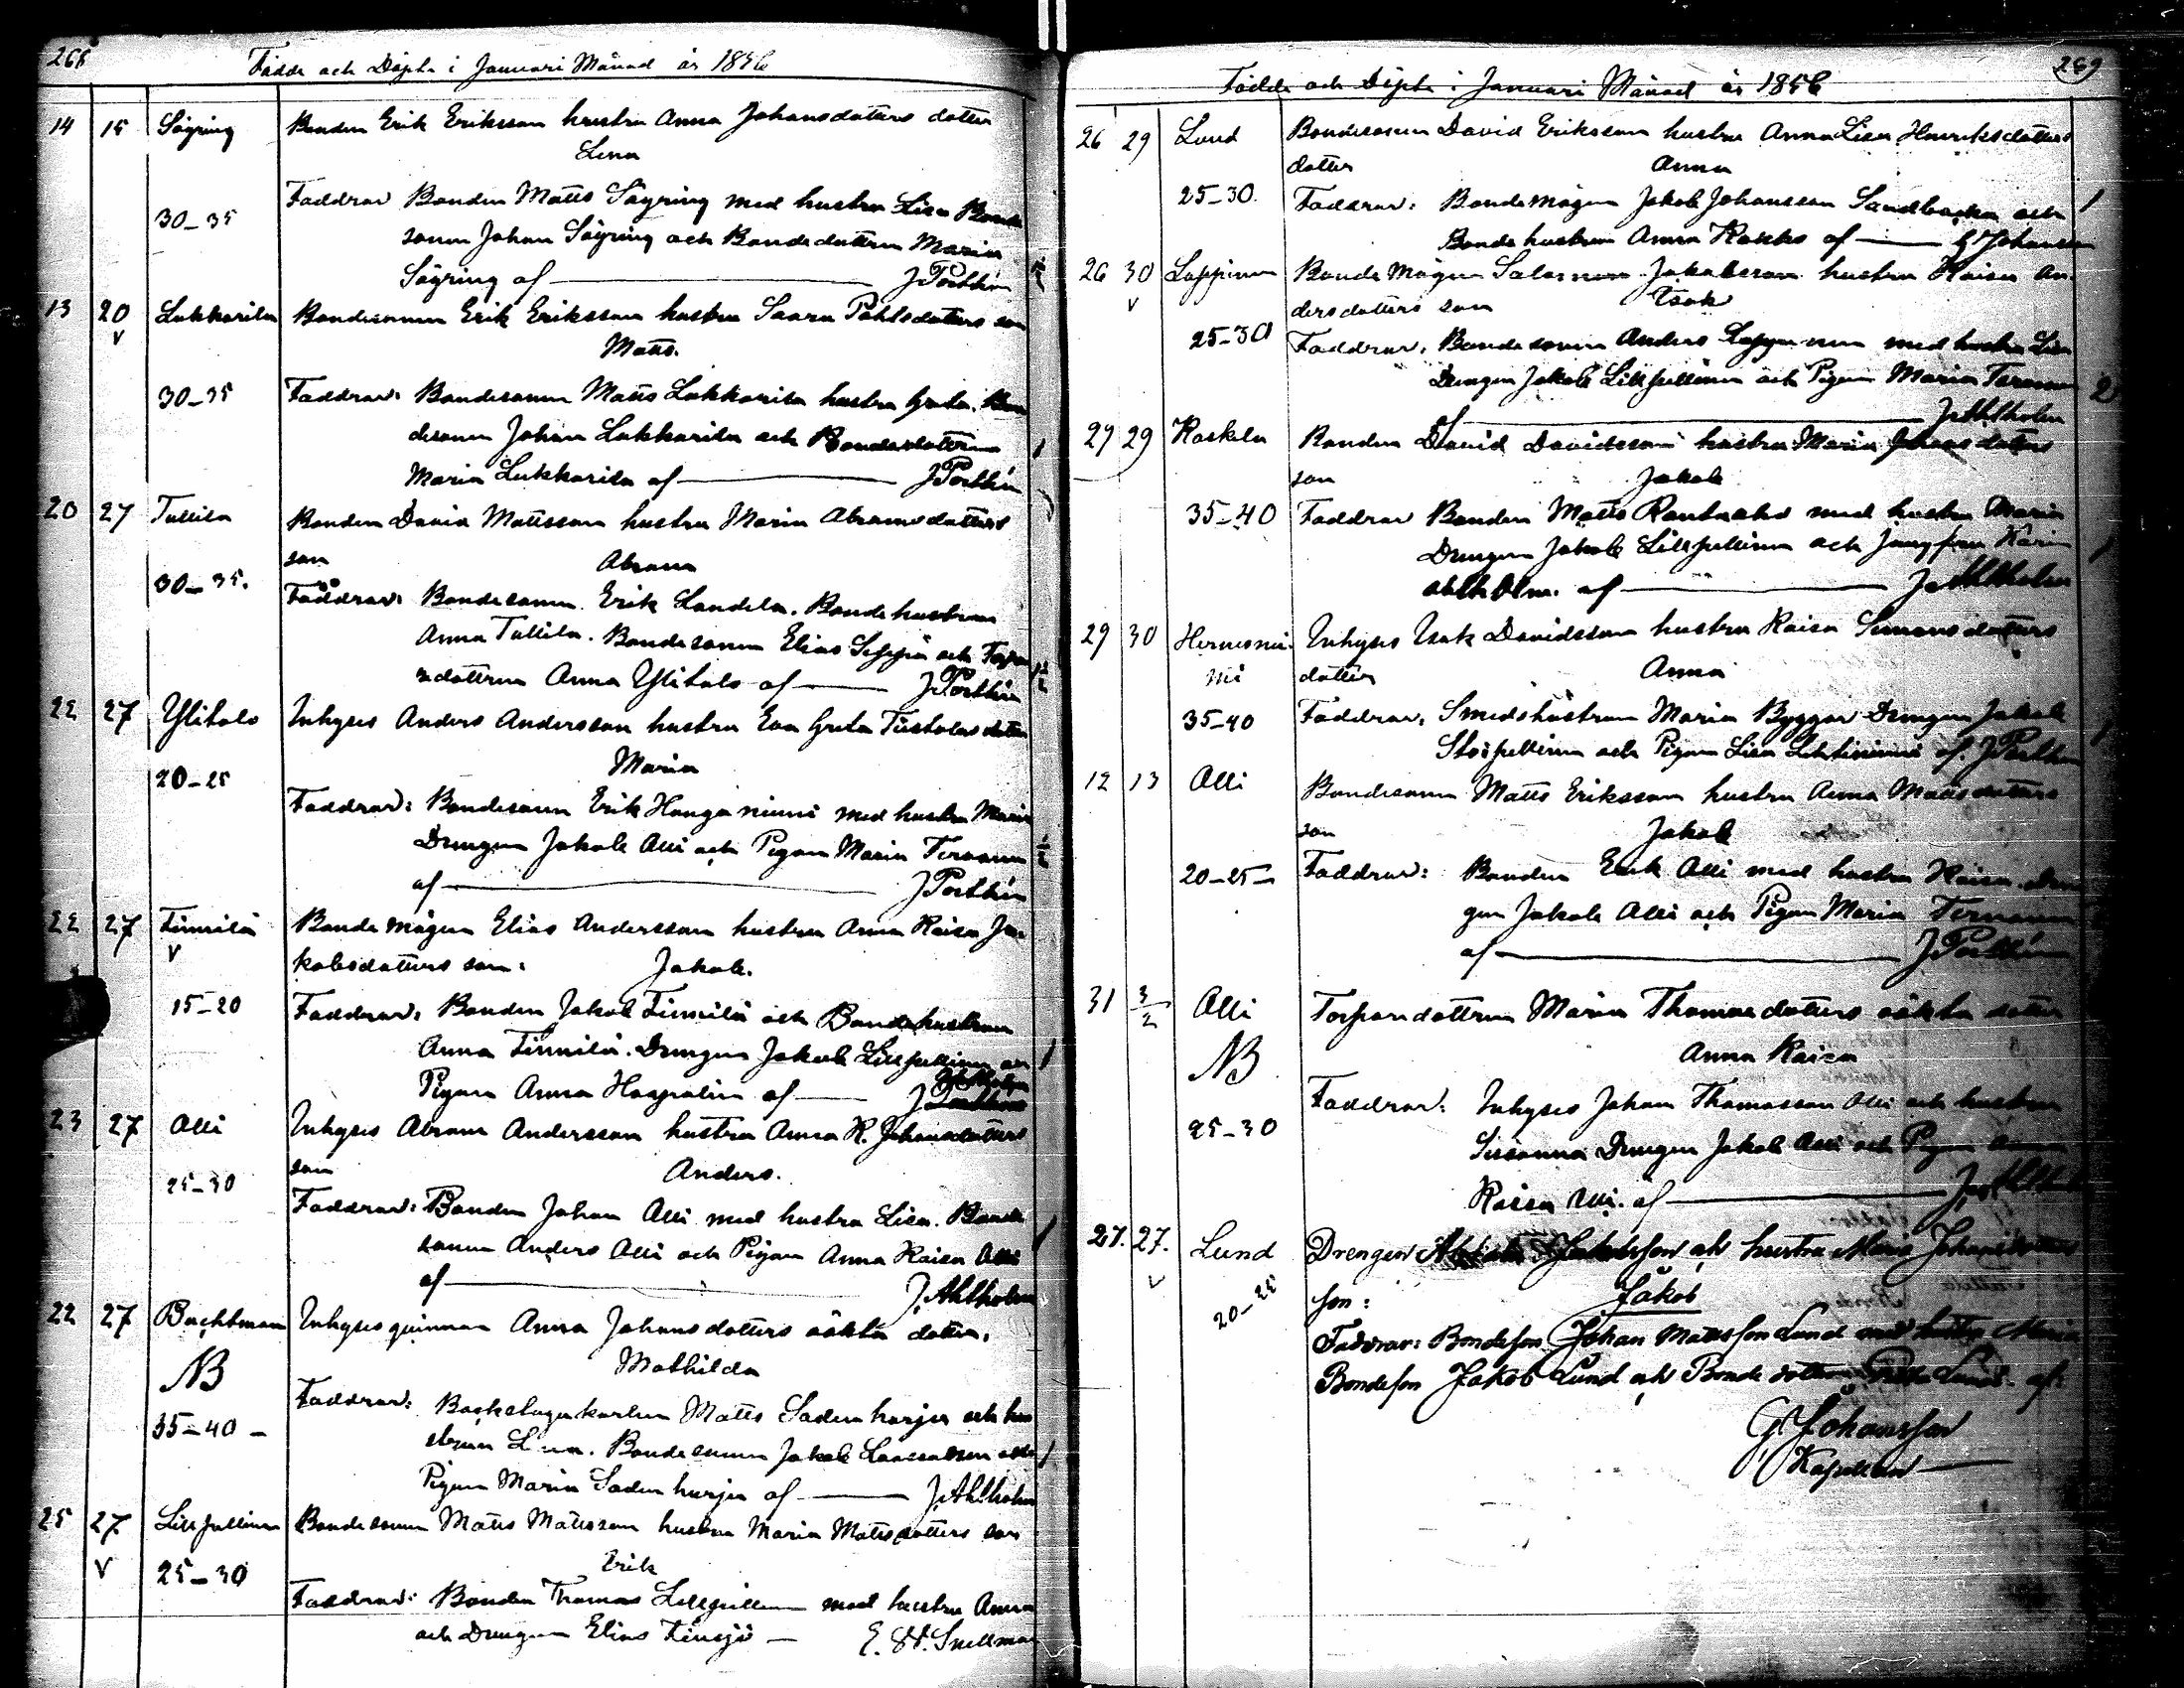 268
Födde och Döpte i Januari Månad år 1856
14 15 Sägring Bonden Erik Eriksson hustru Anna Johansdotters dotter
Lena
30-35 Faddrar Bonden Matts Sägring med hustru Lisa Bonde
sonen Johan Sägring och Bondedottren Maria
Sägring af J Porthén
13 20 Lukkarila Bondesonen Erik Eriksson hustru Saara Påhlsdotters son
Matts.
30-35 Faddrar: Bondesonen Matts Lukkarila hustru Greta. Bon
desonen Johan Lukkarila och Bondedottren
Maria Lukkarila af J Porthén
20 27 Tallila Bonden David Mattsson hustru Maria Abramsdotters
son Abram
30-35. Faddrar: Bondesonen Erik Landela. Bondehustrun
Anna Tallila. Bondesonen Elias Seppä och Torpa
redottren Anna Ylitalo af J Porthén
22 27 Ylitalo Inhyses Anders Andersson hustru Eva Greta dotter
Maria
20-25
Faddrar: Bondesonen Erik Honganiemi med hustru Maria
Drengen Jakob Alli och Pigan Maria Ternanen
af J Porthén
22 27 Finnilä Bonde mågen Elias Andersson hustru Anna Kaisa Ja-
kobsdotters son: Jakob.
15-20 Faddrar: Bonden Jakob Finnilä och Bondehustrun
Anna Finnilä. Drengen Jakob Lillpellinen
Pigan Anna af J Ahlholm
23 27 Alli Inhyses Abram Andersson hustru Anna K. Johansdotters
son Anders.
25-30
Faddrar: Bonden Johan Alli med hustru Lisa. Bonde
sonen Anders Alli och Pigan Anna Kaisa Alli
af J. Ahlholm
22 27 Buchtman Inhysesqvinnan Anna Johansdotters oäkta dotter.
Mathilda
NB
Faddrar: Backstugukarlen Matts Sadinharju och hu
strun Lena. Bondesonen Jakob
35-40 -
Pigan Maria Sadinharju af J. Ahlholm
25 27 Lillpellinen Bondesonen Matts Mattsson hustru Maria Mattsdotters son
Erik
25-30
Faddrar: Bonden Thomas Lillpellinen med hustru Anna
och Drengen Elias Finsjö - E. W. Snellman
269
Födde och Döpte i Januari Månad år 1856
26 29 Lund Bondesonen David Eriksson hustru Anna Lisa Henriksdotters
dotter Anna
25-30. Faddrar: Bondemågen Jakob Johansson Sandbacka och
Bondehustrun Anna Kokko af G Johansson
26 30 Lappinen Bonde Mågen Salomon Jakobsson hustru Kaisa An-
dersdotters son Isak
25-30 Faddrar: Bondesonen Anders Lappinen med hustru Lisa
Drengen Jakob Lillpellinen och Pigan Maria Ternanen
af J Ahlholm
27 29 Koskela Bonden David Davidsson hustru Maria Johansdotters
son Jakob
35-40 Faddrar Bonden Matts Rautaoho med hustru Maria
Drengen Jakob Lillpellinen och Jungfrun Karin
Ahlholm. af J Ahlholm
29 30 Hernesnie- Inhyses Isak Davidsson hustru Kaisa Simonsdotters
mi dotter Anna
35-40 Faddrar: Smedshustrun Maria Byggar Drengen Jakob
Storpellinen och Pigan Lisa Lehtiniemi af. J Porthén
12 13 Alli Bondesonen Matts Eriksson hustru Anna Mattsdotters
son Jakob
20-25- Faddrar: Bonden Erik Alli med hustru Kaisa. Dren
gen Jakob Alli och Pigan Maria Ternanen
af J Porthén
31 3/2 Alli Torparedottren Maria Thomasdotters oäkta dotter
Anna Kaisa
NB
Faddrar: Inhyses Johan Thomasson Alli och hustrun
25-30
Susanna Drengen Jakob Alli och Pigan Anna
Kaisa Alli. af J Ahlholm
27. 27. Lund Drengen Jakobsson och hustru Maria Johansdotters
20-25 son: Jakob
Faddrar: Bondeson Johan Mattsson Lund med hustru Maria
Bondeson Jakob Lund och Bondedottren Greta Lund. af:
G. Johansson
Kapellan